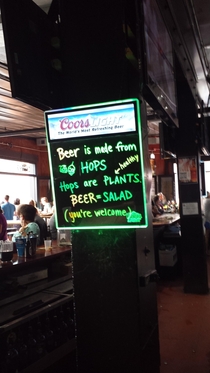 Coors LIGHT
The World's Most Refreshing Beer
Beer is made from
HOPS
healthy
Hops are PLANTS
BEER=SALAD
(you're welcome)